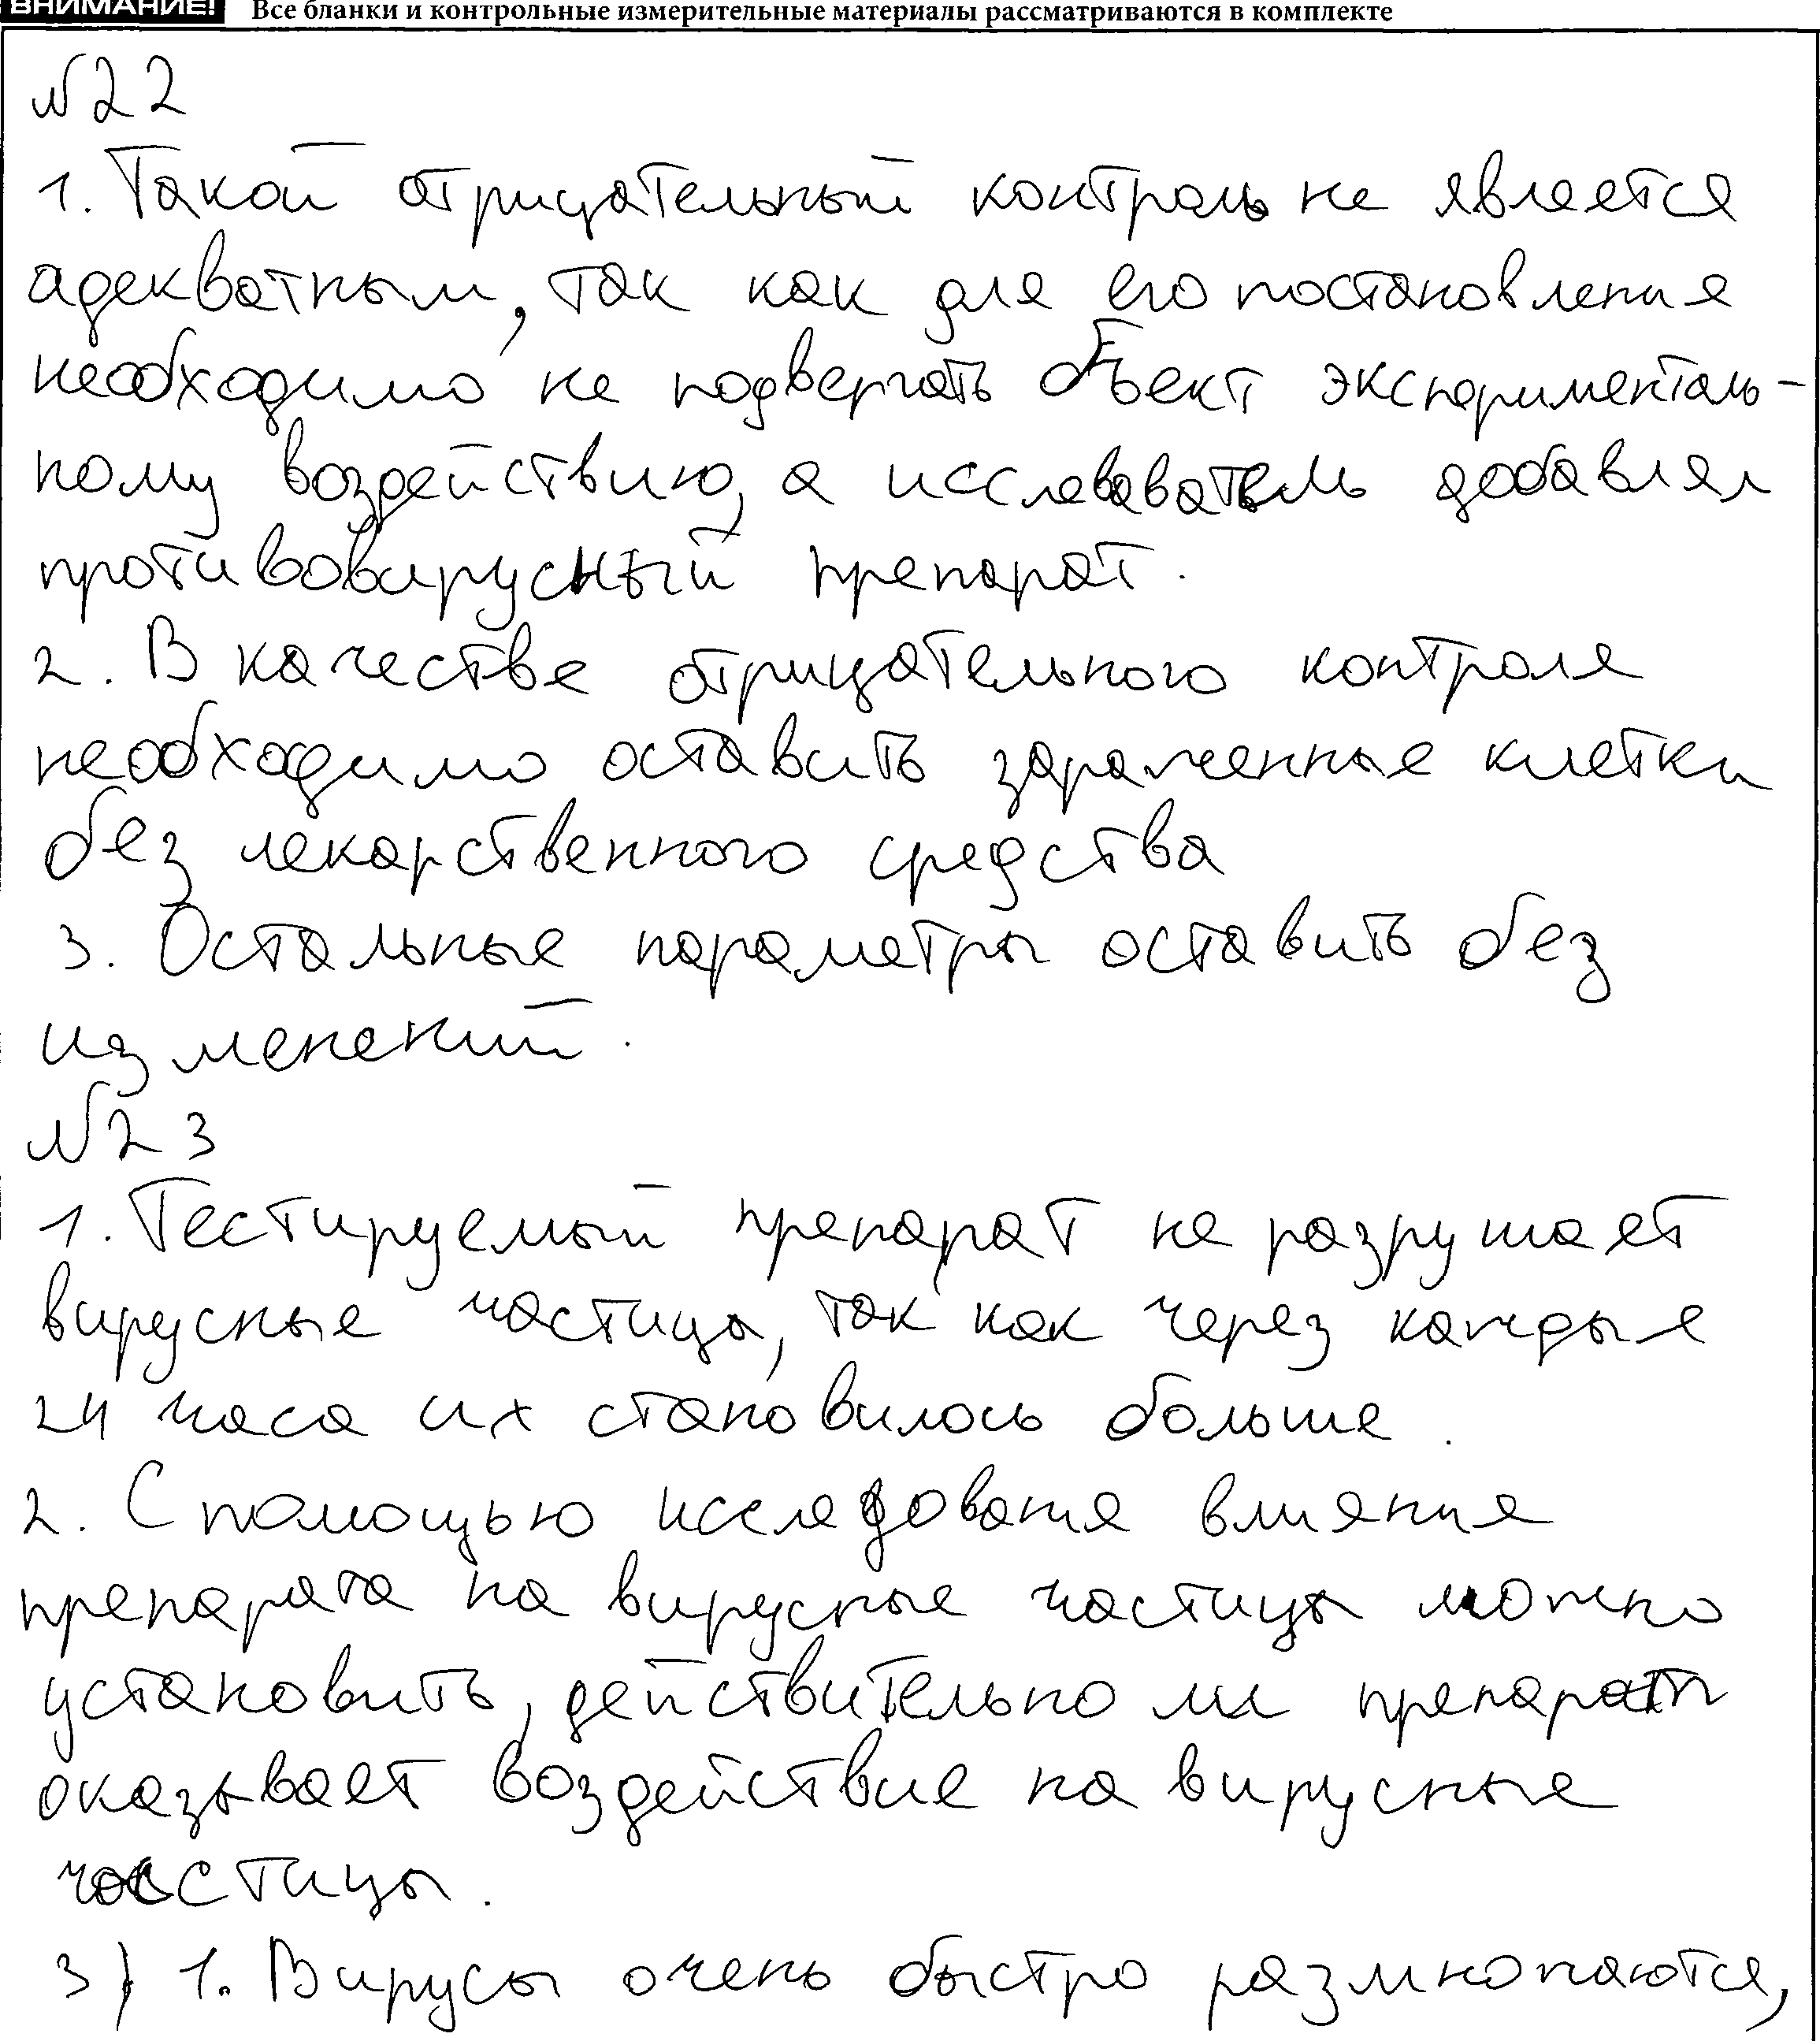 ВНИМАНИЕ! Все бланки и контрольные измерительные материалы рассматриваются в комплекте
№22
1. Такой отрицательный контроль не является
адекватным, так как для его постановления
необходимо не подвергать объект эксперименталь-
ному воздействию, а исслевователь добавлял
противовирусный препарат.
2. В качестве отрицательного контроля
необходимо оставить зараженные клетки
без лекарственного средства
3. Остальные параметры оставить без
изменений.
№23
1. Тестируемый препарат не разрушает
вирусные частицы, так как через каждые
24 часа их становилось больше.
2. С помощью исследования влияния
препарата на вирусные частицы можно
установить, действительно ли препарат
оказывает воздействие на вирусные
частицы.
3) 1. Вирусы очень быстро размножаются,